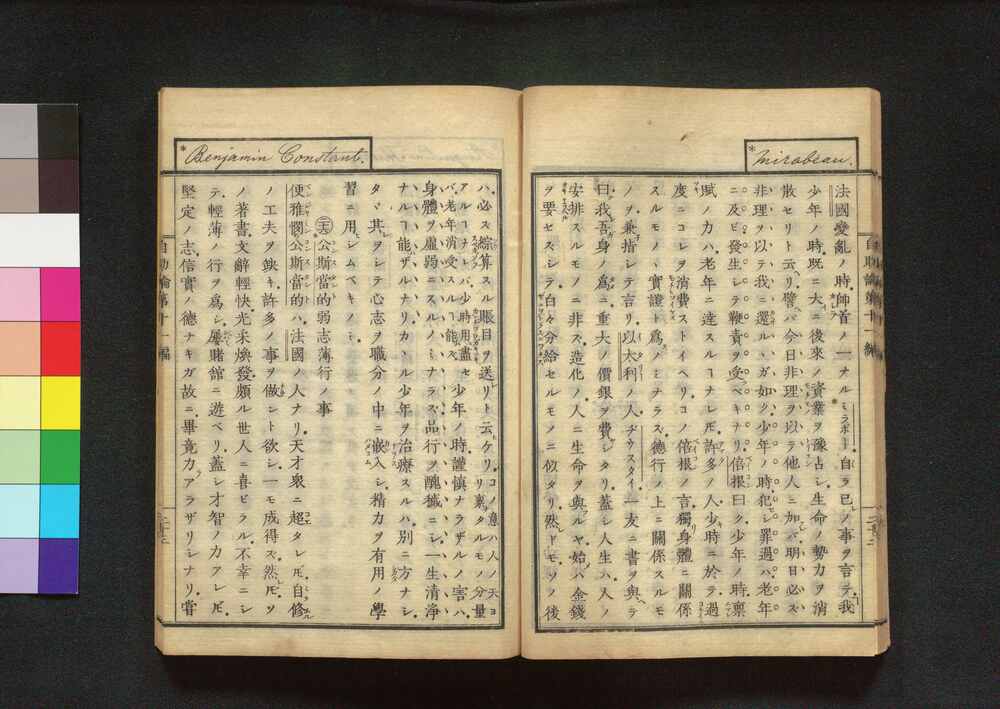 *Mirabeau.
法國變亂ノ時帥首ノ一ナルミラボー自ラ己ノ事ヲ言テ我
少年ノ時既ニ大ニ後來ノ資業ヲ豫占シ生命ノ勢力ヲ消
散セリト云リ譬バ今日非理ヲ以テ他人ニ加バ明日必ズ
非理ヲ以テ我ニ還ルガ如ク少年ノ時犯シ罪過ハ老年
ニ及ビ發生シテ鞭責ヲ受ベキナリ倍根曰ク少年ノ時稟
賦ノ力ハ老年ニ達スルヿナレ𪜈許多ノ人少時ニ於テ過
度ニコレヲ消費ストイヘリコノ倍根ノ言獨身體ニ關係
スルモノヽ實證ト爲ノミナラズ德行ノ上ニ關係スルモ
ノヲ兼指シテ言リ以太利ノ人ヂウスタイ一友ニ書ヲ與テ
曰我吾身ノ爲ニ重大ノ價銀ヲ費シタリ蓋シ人生ハ人ノ
安排スルモノニ非ズ造化ノ人ニ生命ヲ與ルヤ始ハ金錢
ヲ要セズシテ白々分給セルモノニ似タリ然ドモソノ後
自助論第十一編
*Benjamin Constant.
ハ必ズ綜算スル賬目ヲ送リト云ケリコノ意ハ人ノ天ヨ
リ稟タルモノ分量アルヿナレバ少時用盡セバ老年消受スルヿ能ズ
少年ノ時謹慎ナラザルノ害ハ
身體ヲ虛弱ニスルノミナラズ品行ヲ醜穢ニシ一生清淨
ナルヿ能ザルナリカヽル少年ヲ治療スルハ別ニ方ナシ
タヾ其ヲシテ心志ヲ職分ノ中ニ嵌入シ精力ヲ有用ノ學
習ニ用シムベキノミ
公斯當的弱志薄行ノ事
便雅憫公斯當的ハ法國ノ人ナリ天才衆ニ超タレ𪜈自修
ノ工夫ヲ缺キ許多ノ事ヲ做ント欲シ一モ成得ズ然𪜈ソ
ノ著書文辭輕快光采煥發頗ル世人ニ喜ビラル不幸ニシ
テ輕薄ノ行ヲ爲シ屢賭館ニ遊ベリ蓋シ才智ノ力アレ𪜈
堅定ノ志信實ノ德ナキガ故ニ畢竟力アラザリシナリ嘗
自助論第十一編